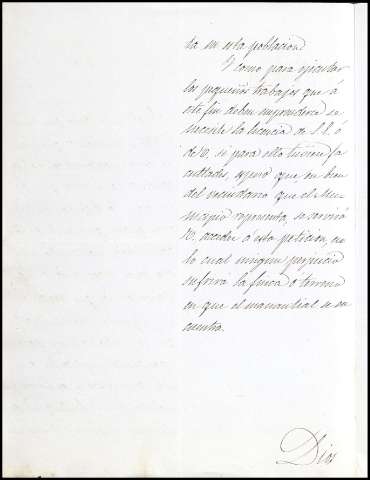 ta en esta poblacion
Y como para ejecutar
los pequeños trabajos que á
este fin deben emprenderse se
necesite la licencia de S.S. ó
de V, si para ello tuviere fa
cultades, espero que en bien
del vecindario que el Mu
nicipio representa, se servirá
V. acceder á esta peticion, en
lo cual ningun perjuicio
sufrirá la finca ó terreno
en que el manantial se en
cuentra.
Dios